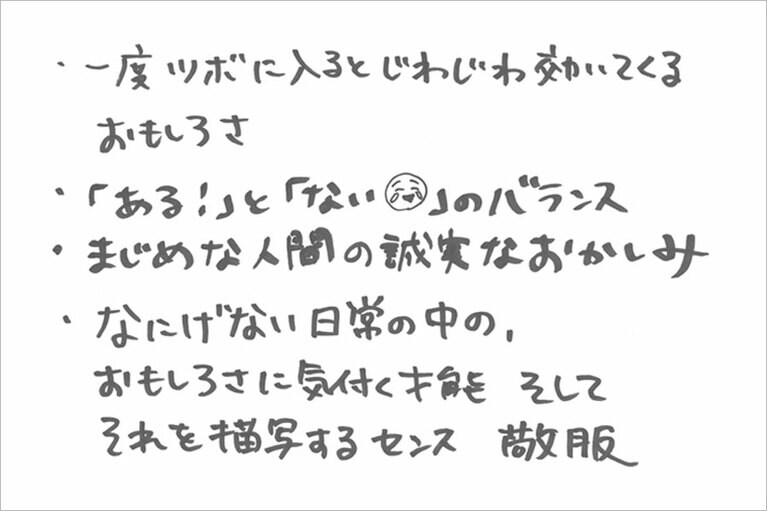 ・一度ツボに入るとじわじわ効いてくる
おもしろさ
・「ある!」と「ない😂」のバランス
・まじめな人間の誠実なおかしみ
・なにげない日常の中の,
おもしろさに気付く才能 そして
それを描写するセンス 敬服